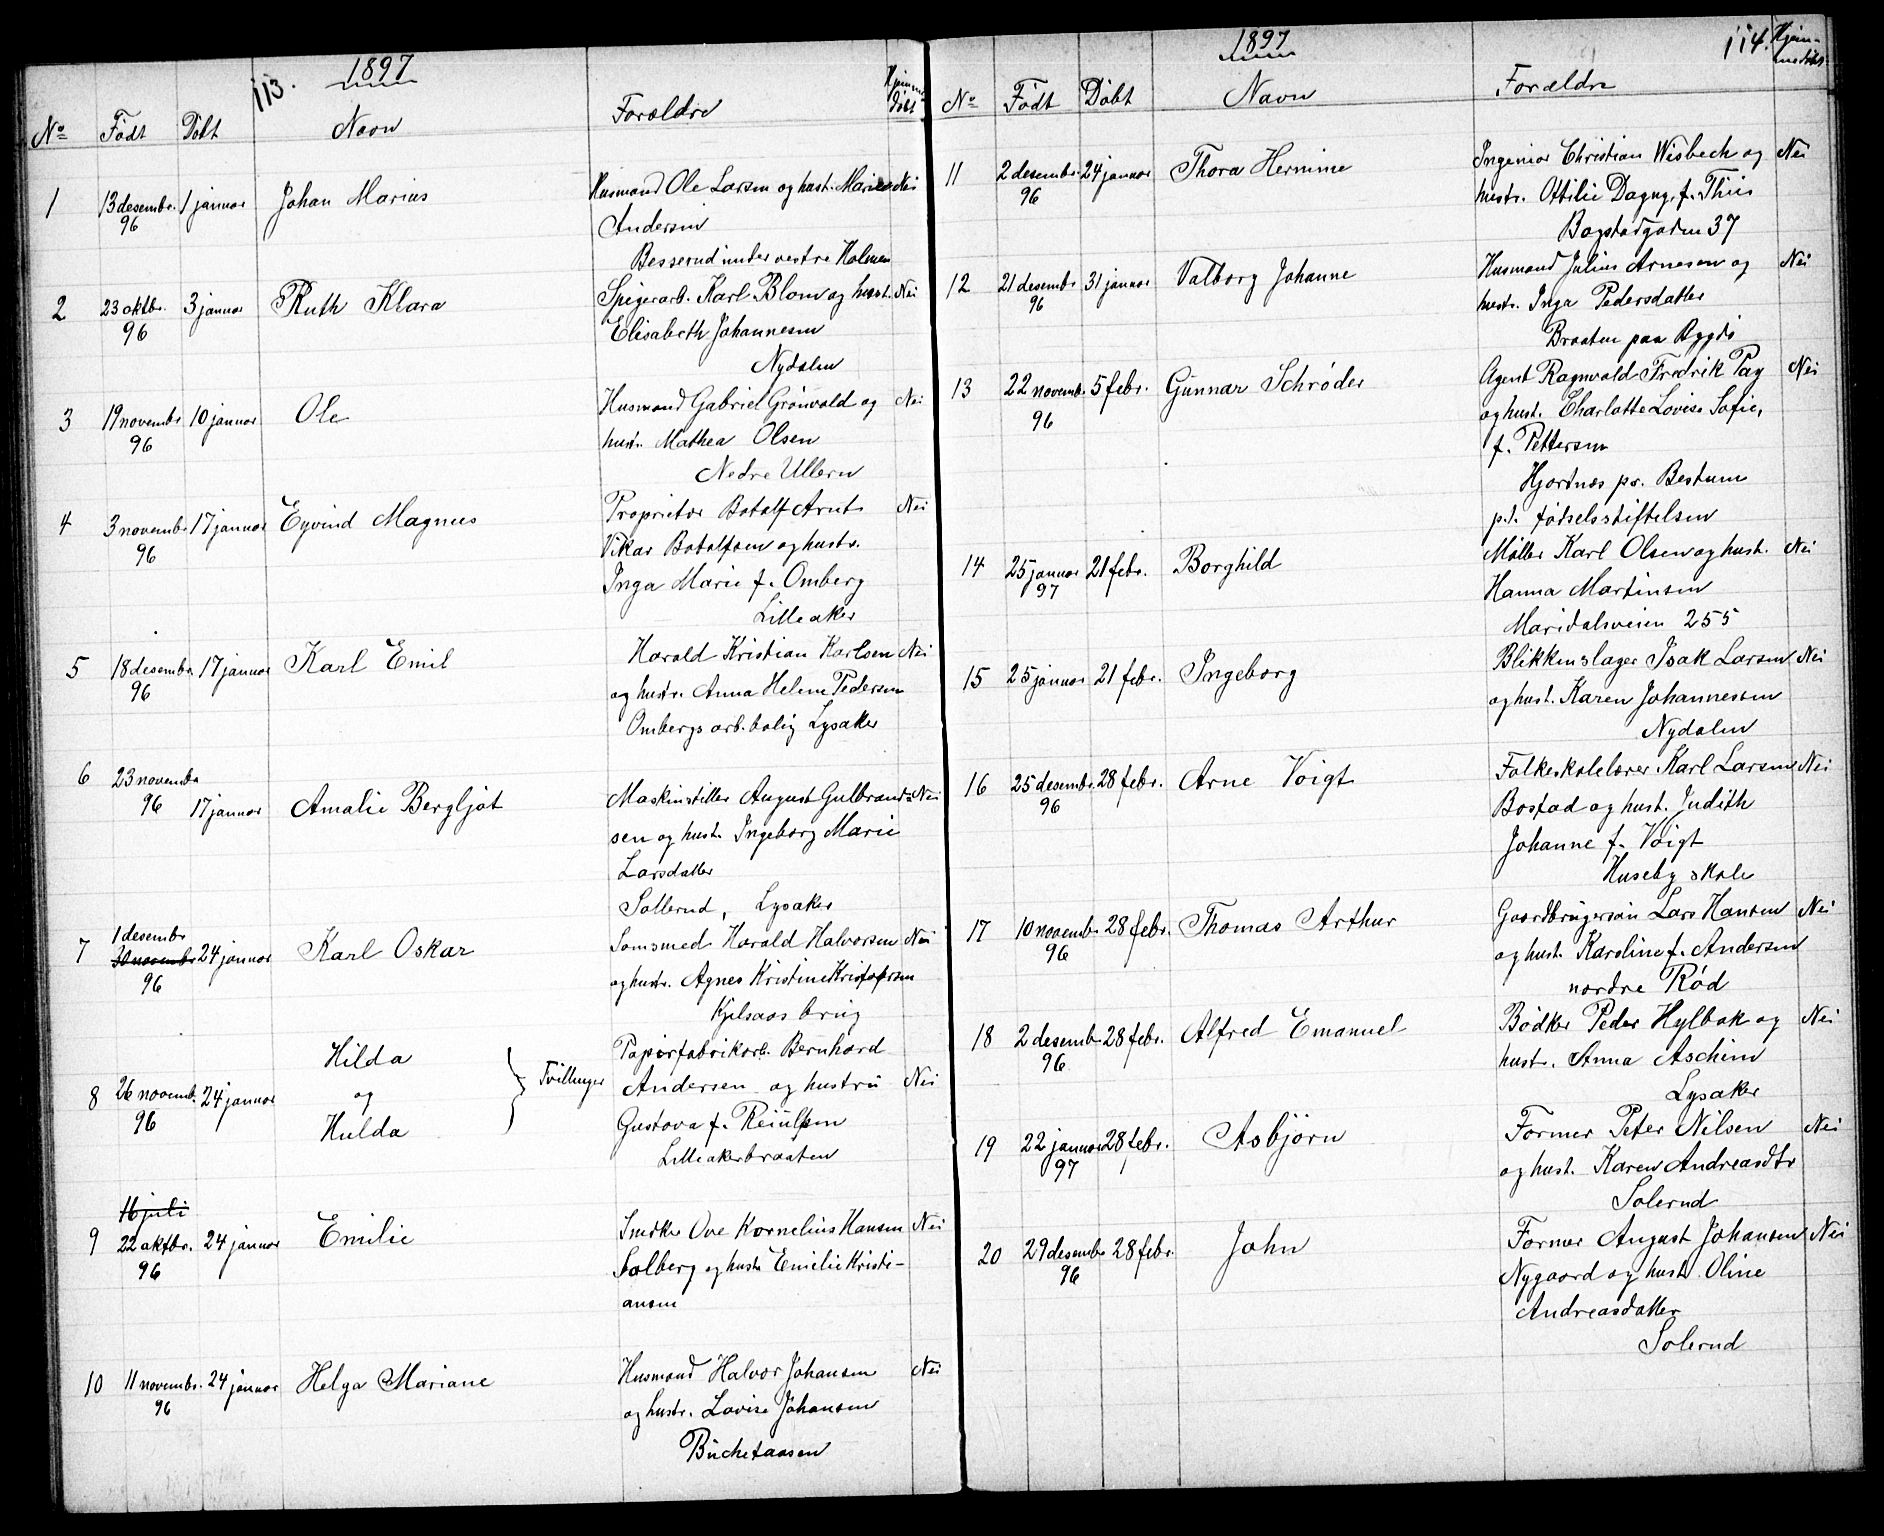 113.
1897
No Födt Döbt Navn Forældre Hjemme döbt
1 13 desembr. 96 1 januar Johan Marius Husmand Ole Larsen og hust. Maries Nei
Andersen
Besserud under vestre Holmen
2 23 oktbr. 96 3 januar Ruth Klara Spigerarb. Karl Blom og hust. Nei
Elisabeth Johannesen
Nydalen
3 19 novembr 96 10 januar Ole Husmand Gabriel Grönvold og Nei
hustr. Mathea Olsen
Nedre Ullern
4 3 novembr 96 17 januar Eyvind Magnus Proprietær Botolf Arnt Nei
Vikar Botolfsen og hustr.
Inga Marie f. Omberg
Lilleaker
5 18 desembr. 96 17 januar Karl Emil Harald Kristian Karlsen Nei
og hustr. Anna Helene Pedersen
Ombergs arb.bolig Lysaker
6 23 novembr 96 17 januar Amalie Bergljot Maskinstiller August Gulbrand= Nei
sen og hust. Ingeborg Marie
Larsdatter
Sollerud, Lysaker
7 1 desembr 30 novembr 96 24 januar Karl Oskar Somsmed Harald Halvorsen Nei
og hustr. Agnes Kristine Kristofersen
Kjelsaas brug
8 26 novemb. 96 24 januar Hilda og Hulda Tvillinger Papirfabrikarb. Bernhard
Andersen og hustru Nei
Gustova f.
Lilleakerbraaten
9 16 juli 22 oktbr. 96 24 januar Emilie Snedker Ove Kornelius Hansen Nei
Solberg og hustr Emilie Kristi-
ansen
10 11 novembr. 96 24 januar Helga Mariane Husmand Halvor Johansen Nei
og hustr. Lovise Johansen
Büchetaasen
114.
1897
No Födt Döbt Navn Forældre Hjemmedöbt
11 2 desembr 96 24 januar Thora Hermine Ingeniør Christian Wisbech og Nei
hustr. Ottilie Dagny, f. Thiis
Bogstadgaden 37
12 21 desembr 96 31 januar Valborg Johanne Husmand Julius Arnesen og Nei
hustr. Inga Pedersdatter
Braaten paa Bygdö
13 22 novemb. 96 5 febr. Gunnar Schrøder Agent Ragnvald Fredrik Pay Nei
og hust. Charlotte Lovise Sofie,
f. Pettersen
Hjortnæs pr. Bestum
p.t. fødselsstiftelsen
14 25 januar 97 21 febr. Borghild Møller Karl Olsen og hust. Nei
Hanna Martinsen
Maridalsveien 255
15 25 januar 21 febr. Ingeborg Blikkenslager Isak Larsen Nei
og hust. Karen Johannessen
Nydalen
16 25 desembr. 96 28 febr. Arne Voigt Folkeskolelærer Karl Larsen Nei
Bostad og hust. Judith
Johanne f. Voigt
Huseby skole
17 10 novemb. 96 28 febr. Thomas Arthur Gaardbrugersön Lars Hansen Nei
og hust. Karoline f. Andersen
nordre Rød
18 2 desemb. 96 28 febr. Alfred Emanuel Bödker Peder Hylbak og Nei
hust. Anna Aschim
Lysaker
19 22 januar 97 28 febr. Asbjörn Former Peter Nilsen Nei
og hust. Karen Andreasdtr
Solerud
20 29 desembr 96 28 febr. John Former August Johansen Nei
Nygaard og hust. Oline
Andreasdatter
Solerud